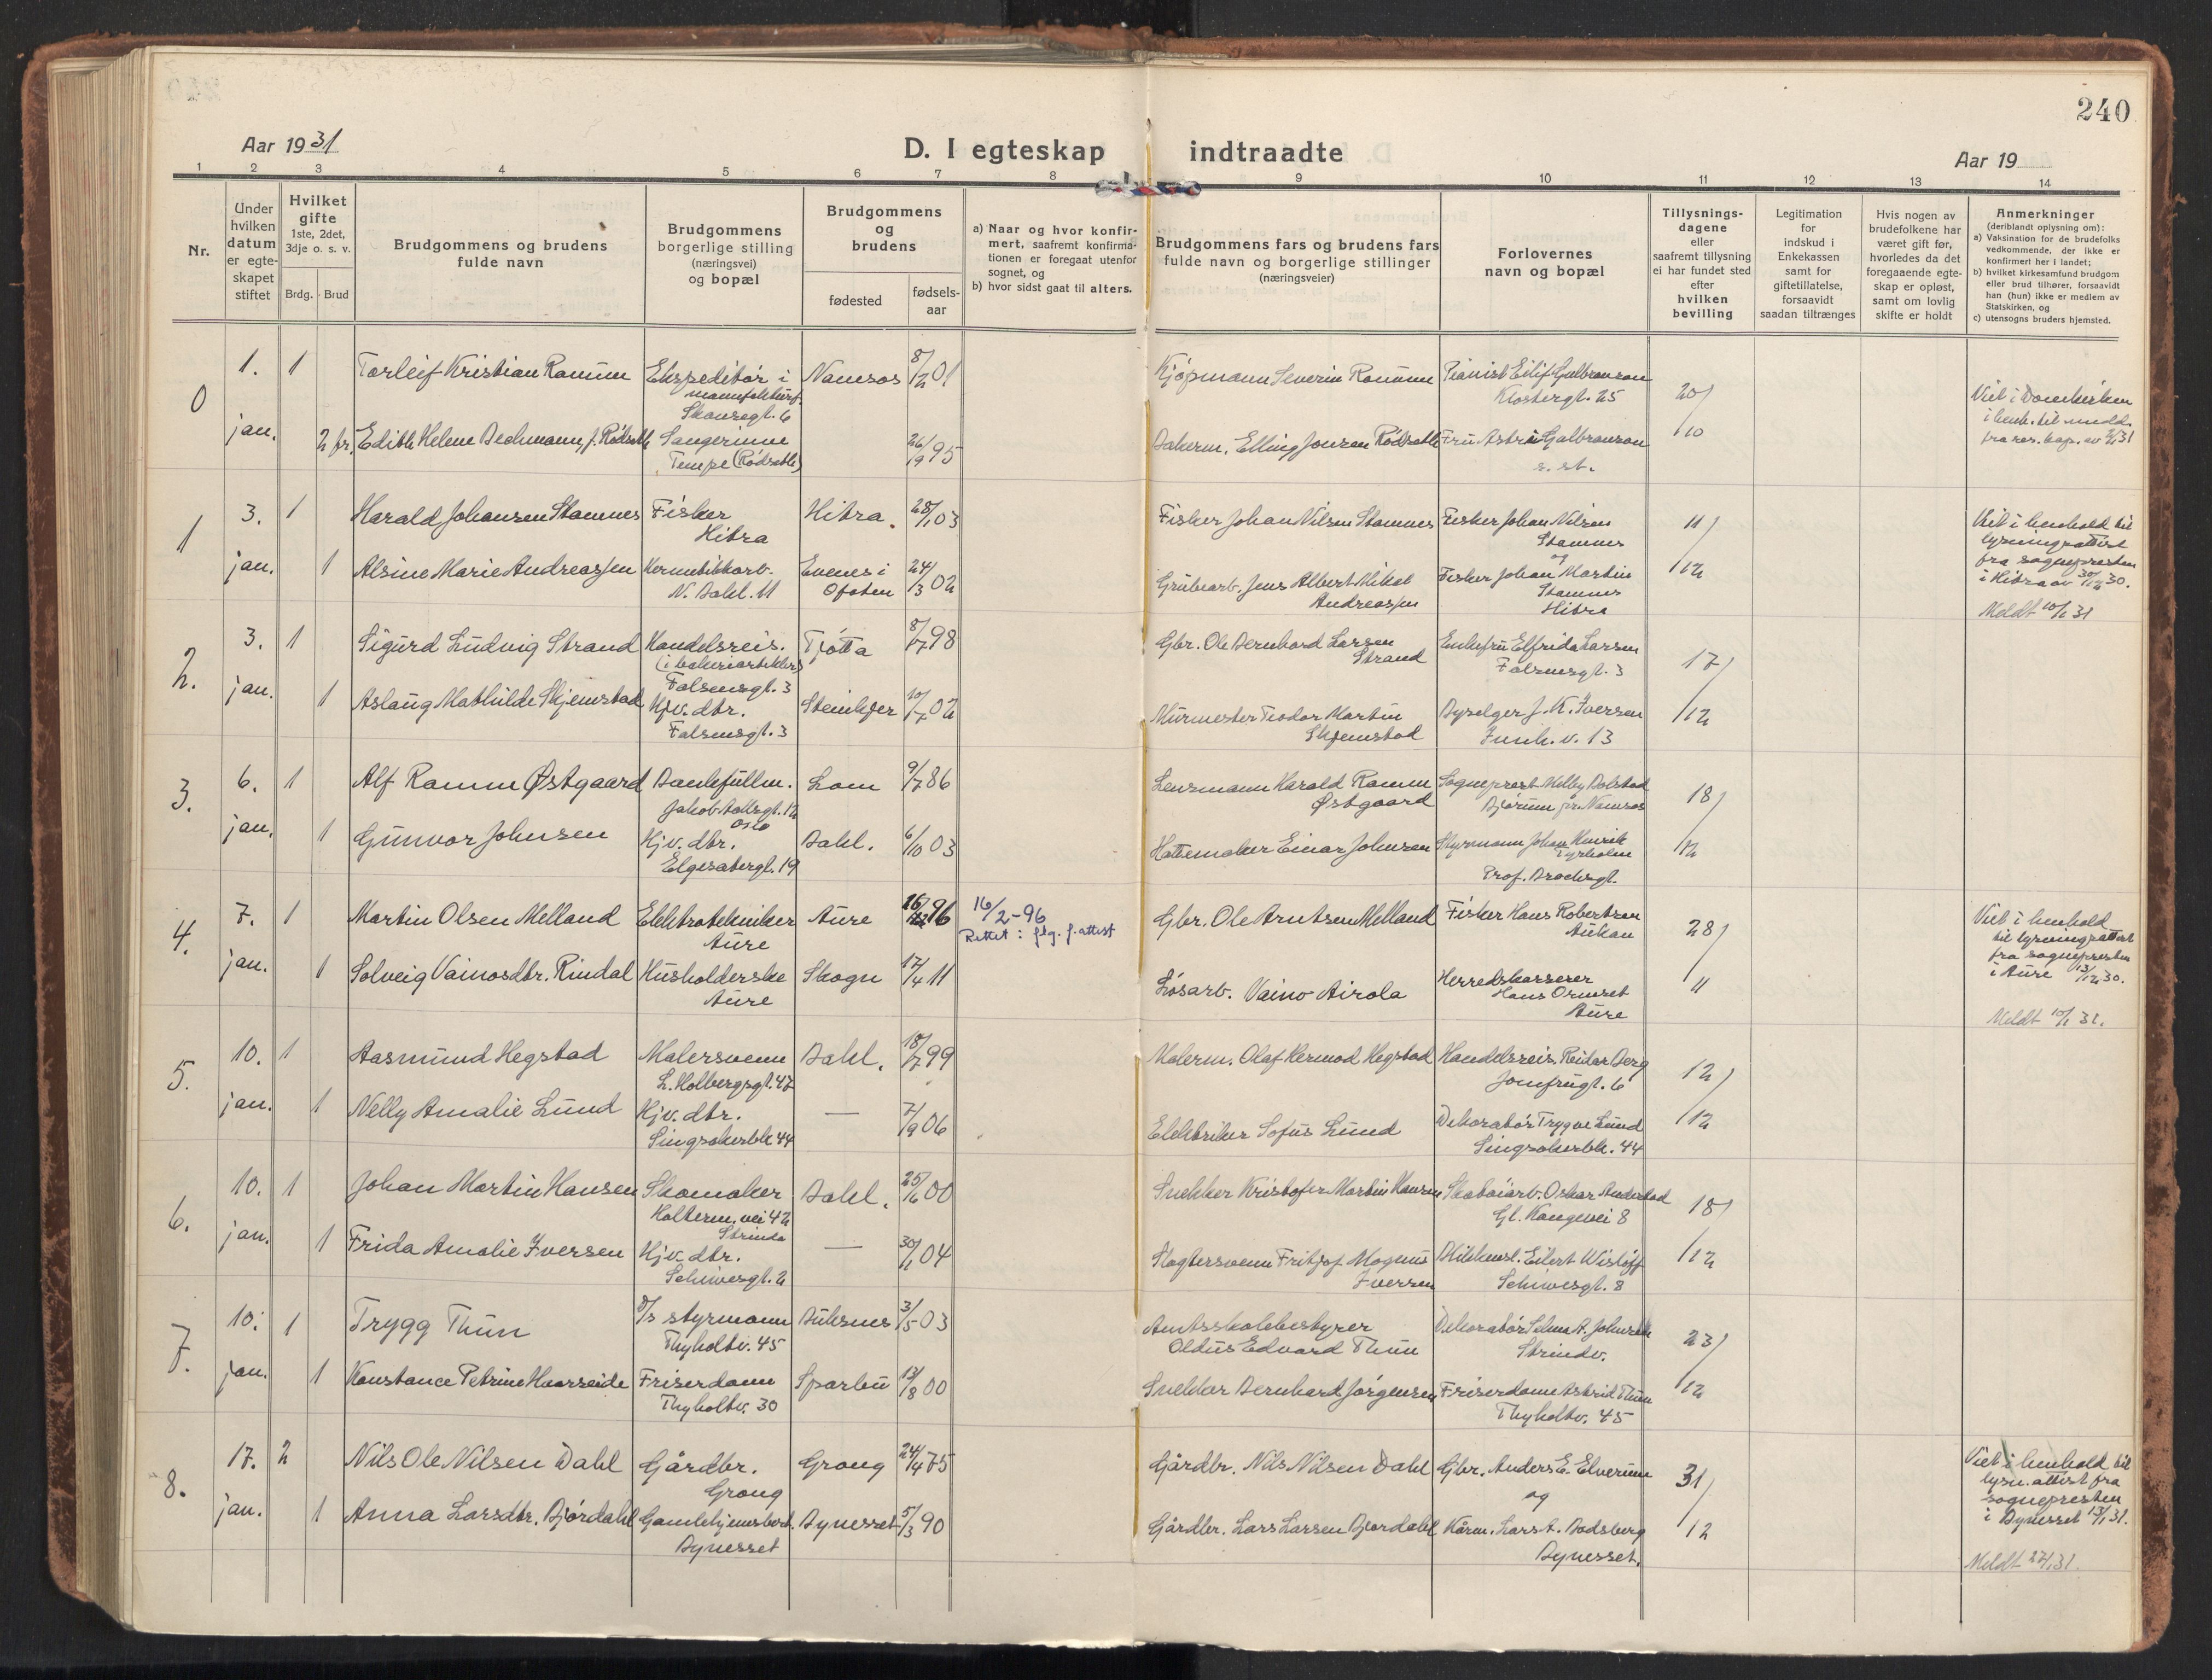 240
Aar 1931
D. I egteskap indtraadte
Aar 19
1 2 3 4 5 6 7 8 9 10 11 12 13 14
Nr.
Under hvilken datum er egteskapet stiftet
Hvilket gifte 1ste, 2det, 3dje o. s. v.
Brdg. Brud
Brudgommens og brudens fulde navn
Brudgommens borgerlige stilling (næringsvei) og bopæl
Brudgommens og brudens
fødested
fødselsaar
a) Naar og hvor konfirmert, saafremt konfirmationen er foregaat utenfor sognet, og
b) hvor sidst gaat til alters.
Brudgommens fars og brudens fars fulde navn og borgerlige stillinger (næringsveier)
Forlovernes navn og bopæl
Tillysningsdagene eller saafremt tillysning ei har fundet sted efter hvilken bevilling
Legitimation for indskud i Enkekassen samt for giftetillatelse, forsaavidt saadan tiltrænges
Hvis nogen av brudefolkene har været gift før, hvorledes da det foregaaende egteskap er opløst, samt om lovlig skifte er holdt
Anmerkninger (deriblandt oplysning om):
a) Vaksination for de brudefolks vedkommende, der ikke er konfirmert her i landet;
b) hvilket kirkesamfund brudgom eller brud tilhører, forsaavidt han (hun) ikke er medlem av Statskirken, og
c) utensogns bruders hjemsted.
0
1. jan.
1 Torleif Kristian Ramm
Ekspeditør i
Skansegt. 6
Namsos
8/2 01
Kjøpmann Severin Ramm
Pianist Eilif Gulbranson
Klostergt. 25
20/10
Viet i Domkirken
2 fr. Edith Helene Bechmann, f. Rødsethe
Sangerinne
Tempe (Rødsethe)
26/9 95
Bakerm. Elling Jonsen Rødsethe
Fru Astri Gulbranson
s. st.
1
3. jan.
1 Harald Johansen Stamnes
Fisker
Hitra
Hitra.
28/1 03
Fisker Johan Nilsen Stamnes
Fisker Johan Nilsen
Stamnes
og
11/12
Viet i henhold til
lysningsattest
fra sognepresten
i Hitra av 30/12 30.
Meldt 10/1 31
1 Alsine Marie Andreassen
Hermetikkarb.
N. Bakl. 11
Evenes i
Ofoten
24/3 02
Grubearb. Jens Albert Mikal
Andreassen
Fisker Johan Martin
Stamnes
Hitra
2.
3. jan.
1 Sigurd Ludvig Strand
Handelsreis.
(i bakeriartikler)
Falsensgt. 3
Tjøtta
8/7 98
Gbr. Ole Bernhard Larsen
Strand
Enkefru Elfrida Larsen
Falsensgt. 3
17/12
1 Aslaug Mathilde Skjemstad
Hjv. dtr.
Falsensgt. 3
Steinkjer
10/7 02
Murmester Teodor Martin
Skjemstad
Byselger J. K. Iversen
13
3.
6. jan.
1 Alf Ramm Østgaard
Bankfullm.
Jakob Aallsgt. 12
Oslo
Lom
9/7 86
Lensmann Harald Ramm
Østgaard
Sogneprest Melby Bolstad
Bjørum pr. Namsos
18/12
1 Gunvor Johnsen
Hjv. dtr.
Elgesetergt. 19
Bakl.
6/10 03
Hattemaker Einar Johnsen
Styrmann Johan Henrik
Tyrholm
Prof. Brochsgt.
4.
7. jan.
1 Martin Olsen Melland
Elektrotekniker
Aure
Aure
16/2 96
16/2-96
Rettet: flg. f. attest
Gbr. Ole Arntsen Melland
Fisker Hans Robertsen
Aukan
28/11
Viet i henhold
til lysningsattest
fra sognepresten
i Aure 13/12 30.
Meldt 10/1 31.
1 Solveig Vainosdtr. Rindal
Husholderske
Aure
Skogn
17/4 11
Løsarb. Vaino Airola
Herredskasserer
Hans Ormset
Aure
5.
10. jan.
1 Aasmund Hegstad
Malersvenn
L. Holbergsgt. 47
Bakl.
18/7 99
Malerm. Olaf Hermod Hegstad
Handelsreis. Reidar Berg
Jomfrugt. 6
12/12
1 Nelly Amalie Lund
Hjv. dtr.
Singsakerbk. 44
—
7/9 06
Elektriker Sofus Lund
Dekoratør Trygve Lund
Singsakerbk. 44
6.
10. jan.
1 Johan Martin Hansen
Skomaker
Holterm. vei 42
Strinda
Bakl.
25/6 00
Snekker Kristofer Martin Hansen
Skotøiarb. Oskar Anderstad
Gl. Kongevei 8
18/12
1 Frida Amalie Iversen
Hjv. dtr.
Schiwesgt. 2
—
30/1 04
Slagtersvenn Fritjof Magnus
Iversen
Blikkensl. Eilert Wisløff
Schiwesgt. 8
7.
10. jan.
1 Trygg Thun
d/s styrmann
Thyholtv. 45
Buksnes
3/5 03
Amtsskolebestyrer
Oldus Edvard Thun
Dekoratør Selma A. Johnsen
Strindv.
23/12
1 Konstance Petrine Haarseide
Friserdame
Thyholtv. 30
Sparbu
13/8 00
Snekker Bernhard Jørgensen
Friserdame Astrid Thun
Thyholtv. 45
8.
17. jan.
2 Nils Ole Nilsen Dahl
Gårdbr.
Grong
Grong
24/4 75
Gårdbr. Nils Nilsen Dahl
Gbr. Anders E. Elverum
og
31/12
Viet i henhold til
lysn. attest fra
sognepresten
i Bynesset 13/1 31.
Meldt 27/1 31.
1 Anna Larsdtr. Bjørdahl
Gamlehjemsbest.
Bynesset
Bynesset
5/3 90
Gårdbr. Lars Larsen Bjørdahl
Kårm. Lars A. Bodsberg
Bynesset.